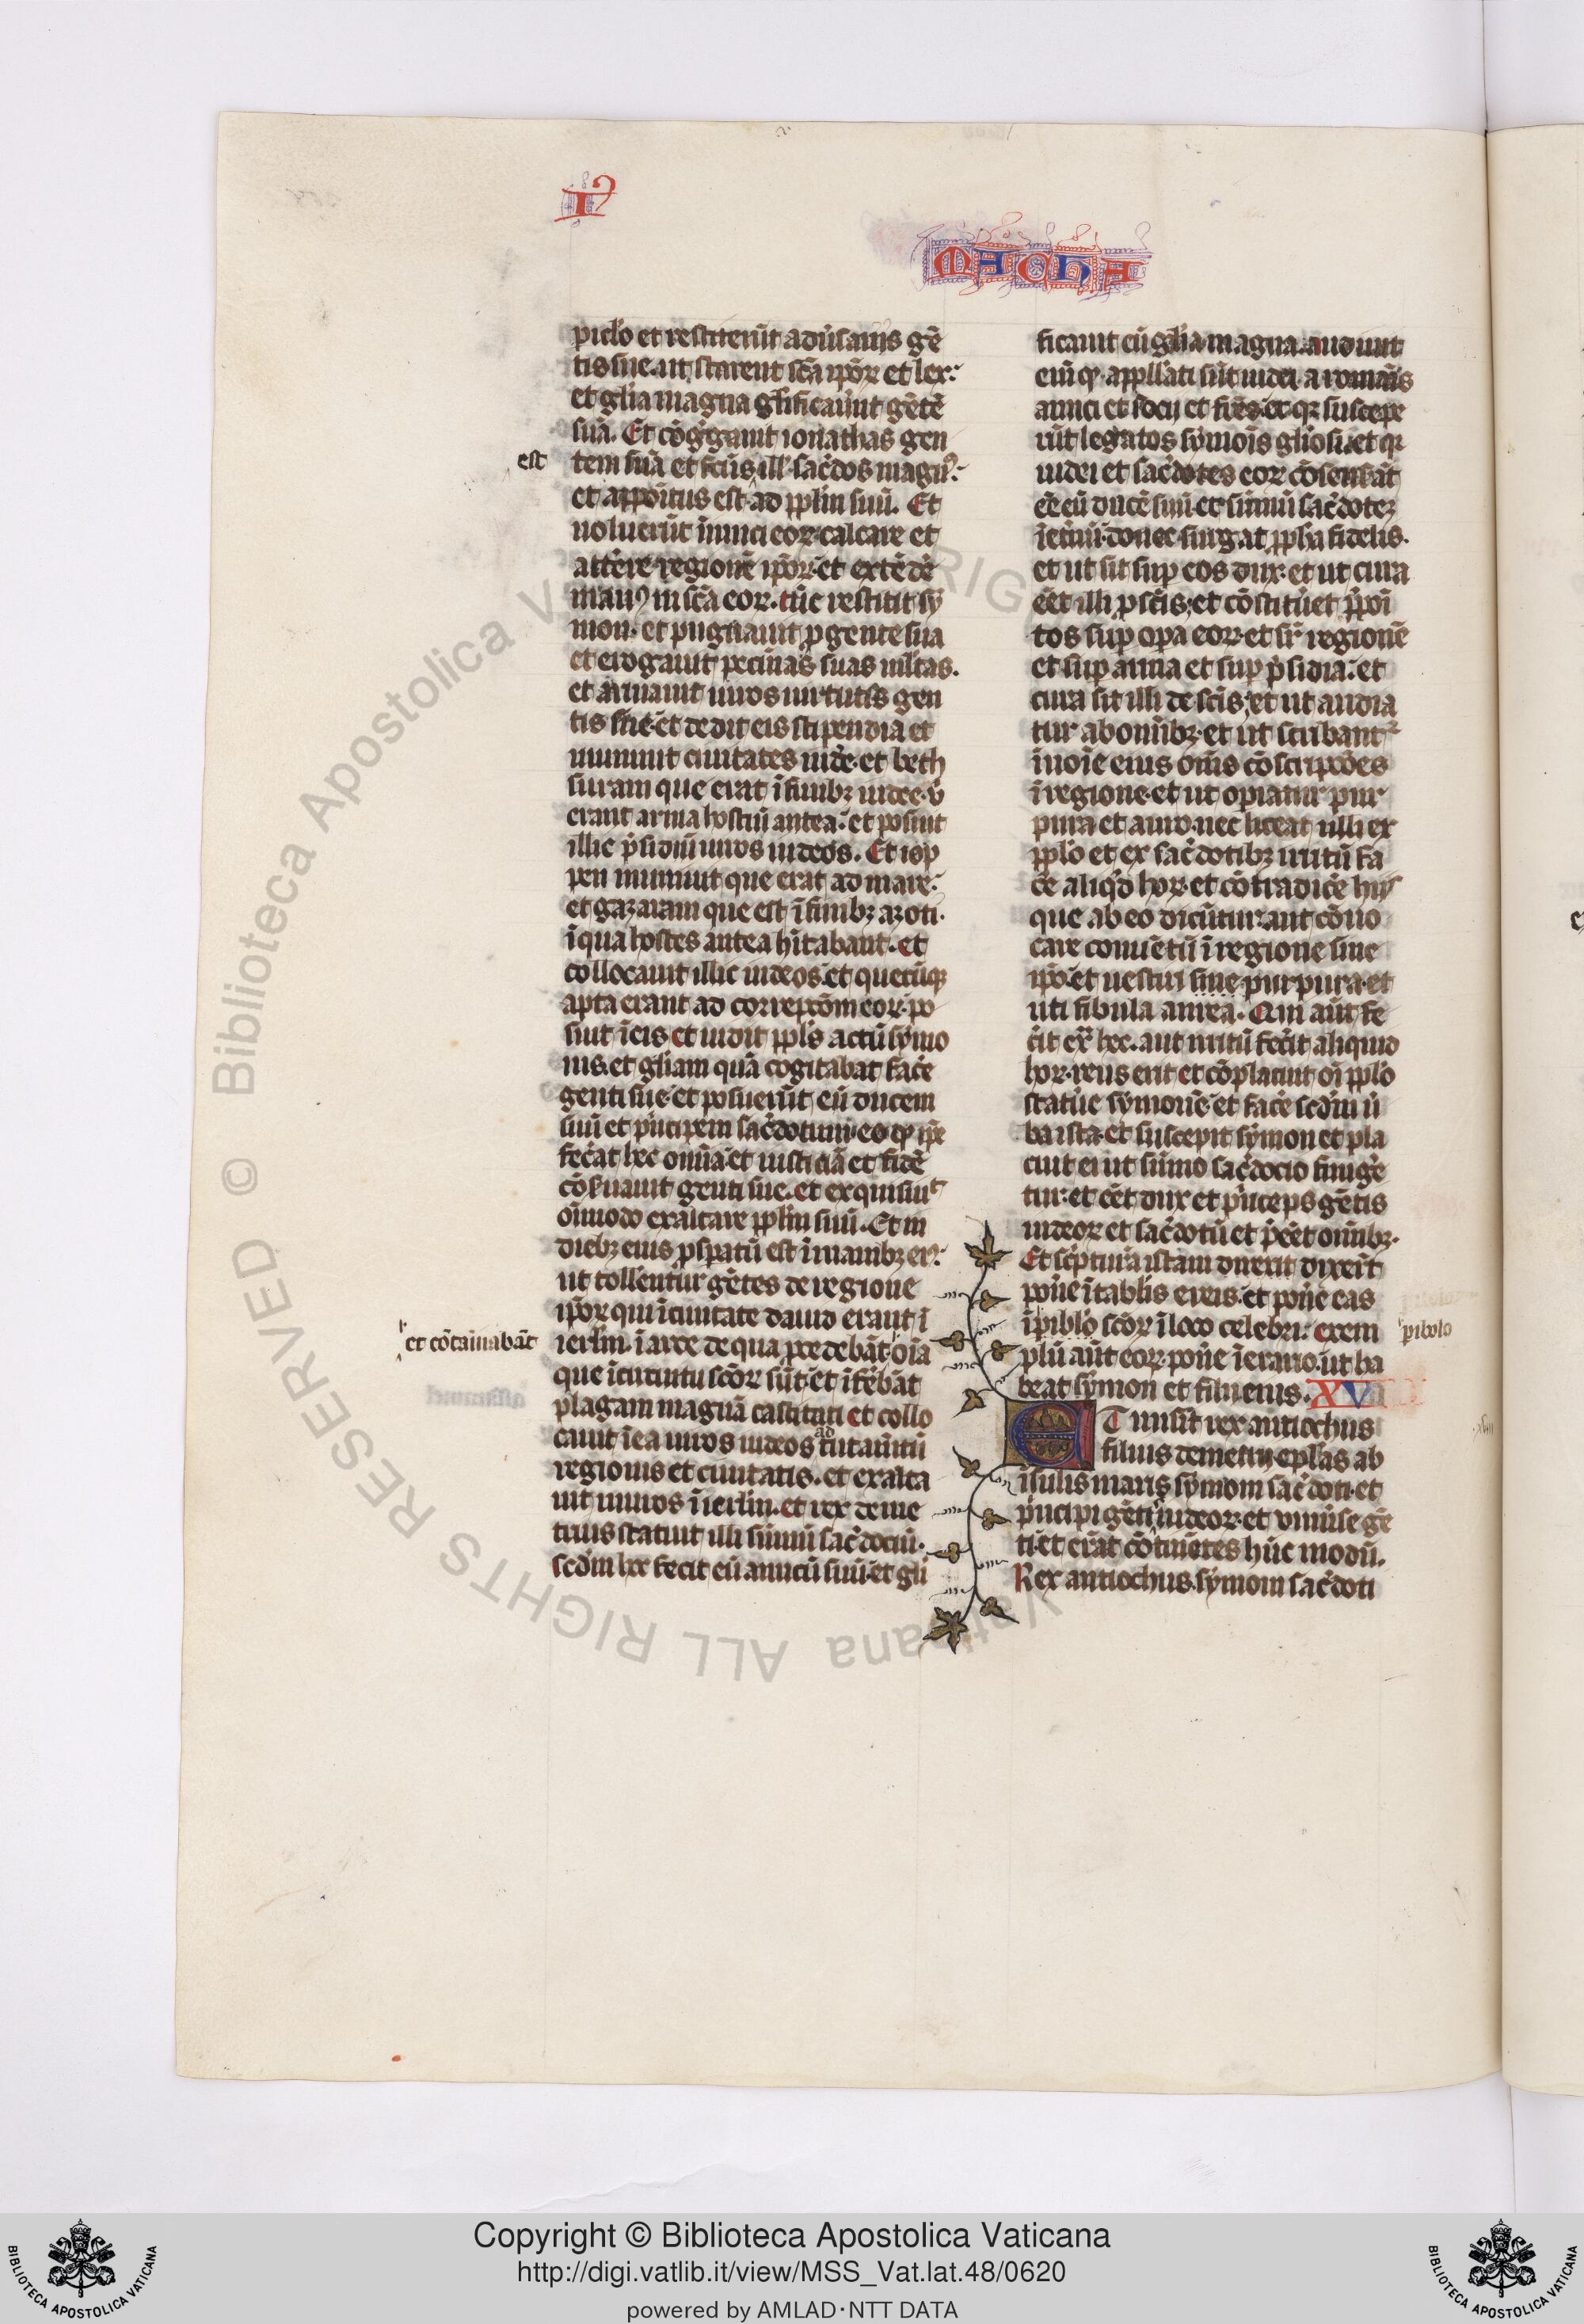 I
MACHA
piclo et restiterūt adūsariis gē
tis sue. ut starent scā ipoꝝ et lex:
et gl̄ia magna gl̄ificauīnt gētē
suā. Et cōḡgauit ionathas gen
est
tem suā et fcūs ill' sac̄dos magnꝰ:
et appōitus est ad pplm̄ suū. Et
uoluerūt inimici eoꝝ calcare et
attēre regionē ipoꝝ et extēdē
manꝰ in scā eoꝝ. tūc restitit sy
mon. et pugnauit ꝓ gente sua
et erogauit pecūias suas ml̄tas.
et armauit uiros uirtutis gen
tis sue et dedit eis stipendia et
muniuit ciuitates iude et beth
suram que erat ī finibꝫ iudee. ū
erant arma hostiū antea: et posuit
illic p̄sidiū uiros iudeos. Et iop
pen muniuit que erat ad mare:
et gazaram que est ī finibꝫ azoti.
ī qua hostes antea hītabant. et
collocauit illic iudeos et quecūqꝫ
apta erant ad correptōem eoꝝ. po
suit ī eis et uidit ppl̄s actū symo
nis. et gl̄iam quā cogitabat facē
genti sue. et posuerūt eū ducem
suū et p̄ncipem sac̄dotum. eo ꝙ ip̄e
fec̄at hec omīa. et iusticiā et fidē
cōs̄uauit genti sue. et exquisiuit
oīmodo exaltare pplm̄ suū. Et in
diebꝫ eius ꝓspatū est ī manibꝫ eiꝰ:
ut tollentur gētes de regione
ipoꝝ qui ī ciuitate dauid erant ī
et cōtaīnabāt
ierl̄m. ī arce de qua ꝓcedebāt oīa
que ī circuitu scōꝝ sūt. et īfebāt
plagam magnā castitati et collo
cauit ī ea uiros iudeos ad tutamtū
regionis et ciuitatis. et exalta
uit muros ī ierl̄m. et rex deme
trius statuit illi summū sac̄dociū.
scdm̄ hec fecit eū amicū suū. et gl̄i
ficauit eū gl̄ia magna. audiuit
eni ꝙ appll̄ati sūt iudei a romāis
amici et socii et fr̄es. et qꝛ suscepe
rūt legatos symoīs gl̄iose. et qꝛ
iudei et sac̄dotes eoꝝ cōsenserāt
eē eū ducē suū. et sūmū sac̄dotē
īet̄nū. donec surgat ppha fidelis.
et ut sit sup eos dux. et ut cura
eēt illi ꝓ scīs. et cōstitūet p̄poi
tos sup opa eoꝝ. et sr̄ regionē
et sup arma et sup p̄sidia. et
cura sit illi de scīs. et ut audia
tur ab omībꝫ. et ut scribant
ī noīe eius om̄s cōscriptōes
ī regione. et ut opiatur pur
pura et auro. nec liceat ulli ex
pplo et ex sac̄dotibꝫ irritū fa
cē aliqd̄ hoꝝ. et cōtradicē hiis
que ab eo dicūtur. aut cōuo
care conuētū ī regione sine
ipo. et uestiri sine purpura. et
uti fibula aurea. Qui aūt fe
cīt exͣ hec. aut irritū fec̄it aliquid
hoꝝ. reus erit et cōplacuit oī pplo
statūe symonē et facē scdm̄ ū
ba ista. et suscepit symon et pla
cuit ei ut sūmo sac̄docio fungē
tur. et eēt dux et p̄nceps gētis
iudeoꝝ et sac̄dotū et p̄eēt omībꝫ.
Et sc̄pturā istam dixerūt dixerūt
ponē ī tabl̄is ereis. et ponē eas
ī piblo scōꝝ ī loco celebri: exem
pibolo
plū aūt eoꝝ ponē ī erario. ut ha
beat symon et filii eius. XV
ET misit rex antiochus
filius demetrii epl̄as ab
īsulis maris symoni sac̄doti. et
p̄ncipi gētis iudeoꝝ. et uniuse gē
ti. et erāt cōtinētes hūc modū.
Rex antiochus symoni sac̄doti
© Biblioteca Apostolica Vaticana ALL RIGHTS RESERVED
Copyright © Biblioteca Apostolica Vaticana
http://digi.vatlib.it/view/MSS_Vat.lat.48/0620
powered by AMLAD·NTT DATA
BIBLIOTECA APOSTOLICA VATICANA
BIBLIOTECA APOSTOLICA VATICANA